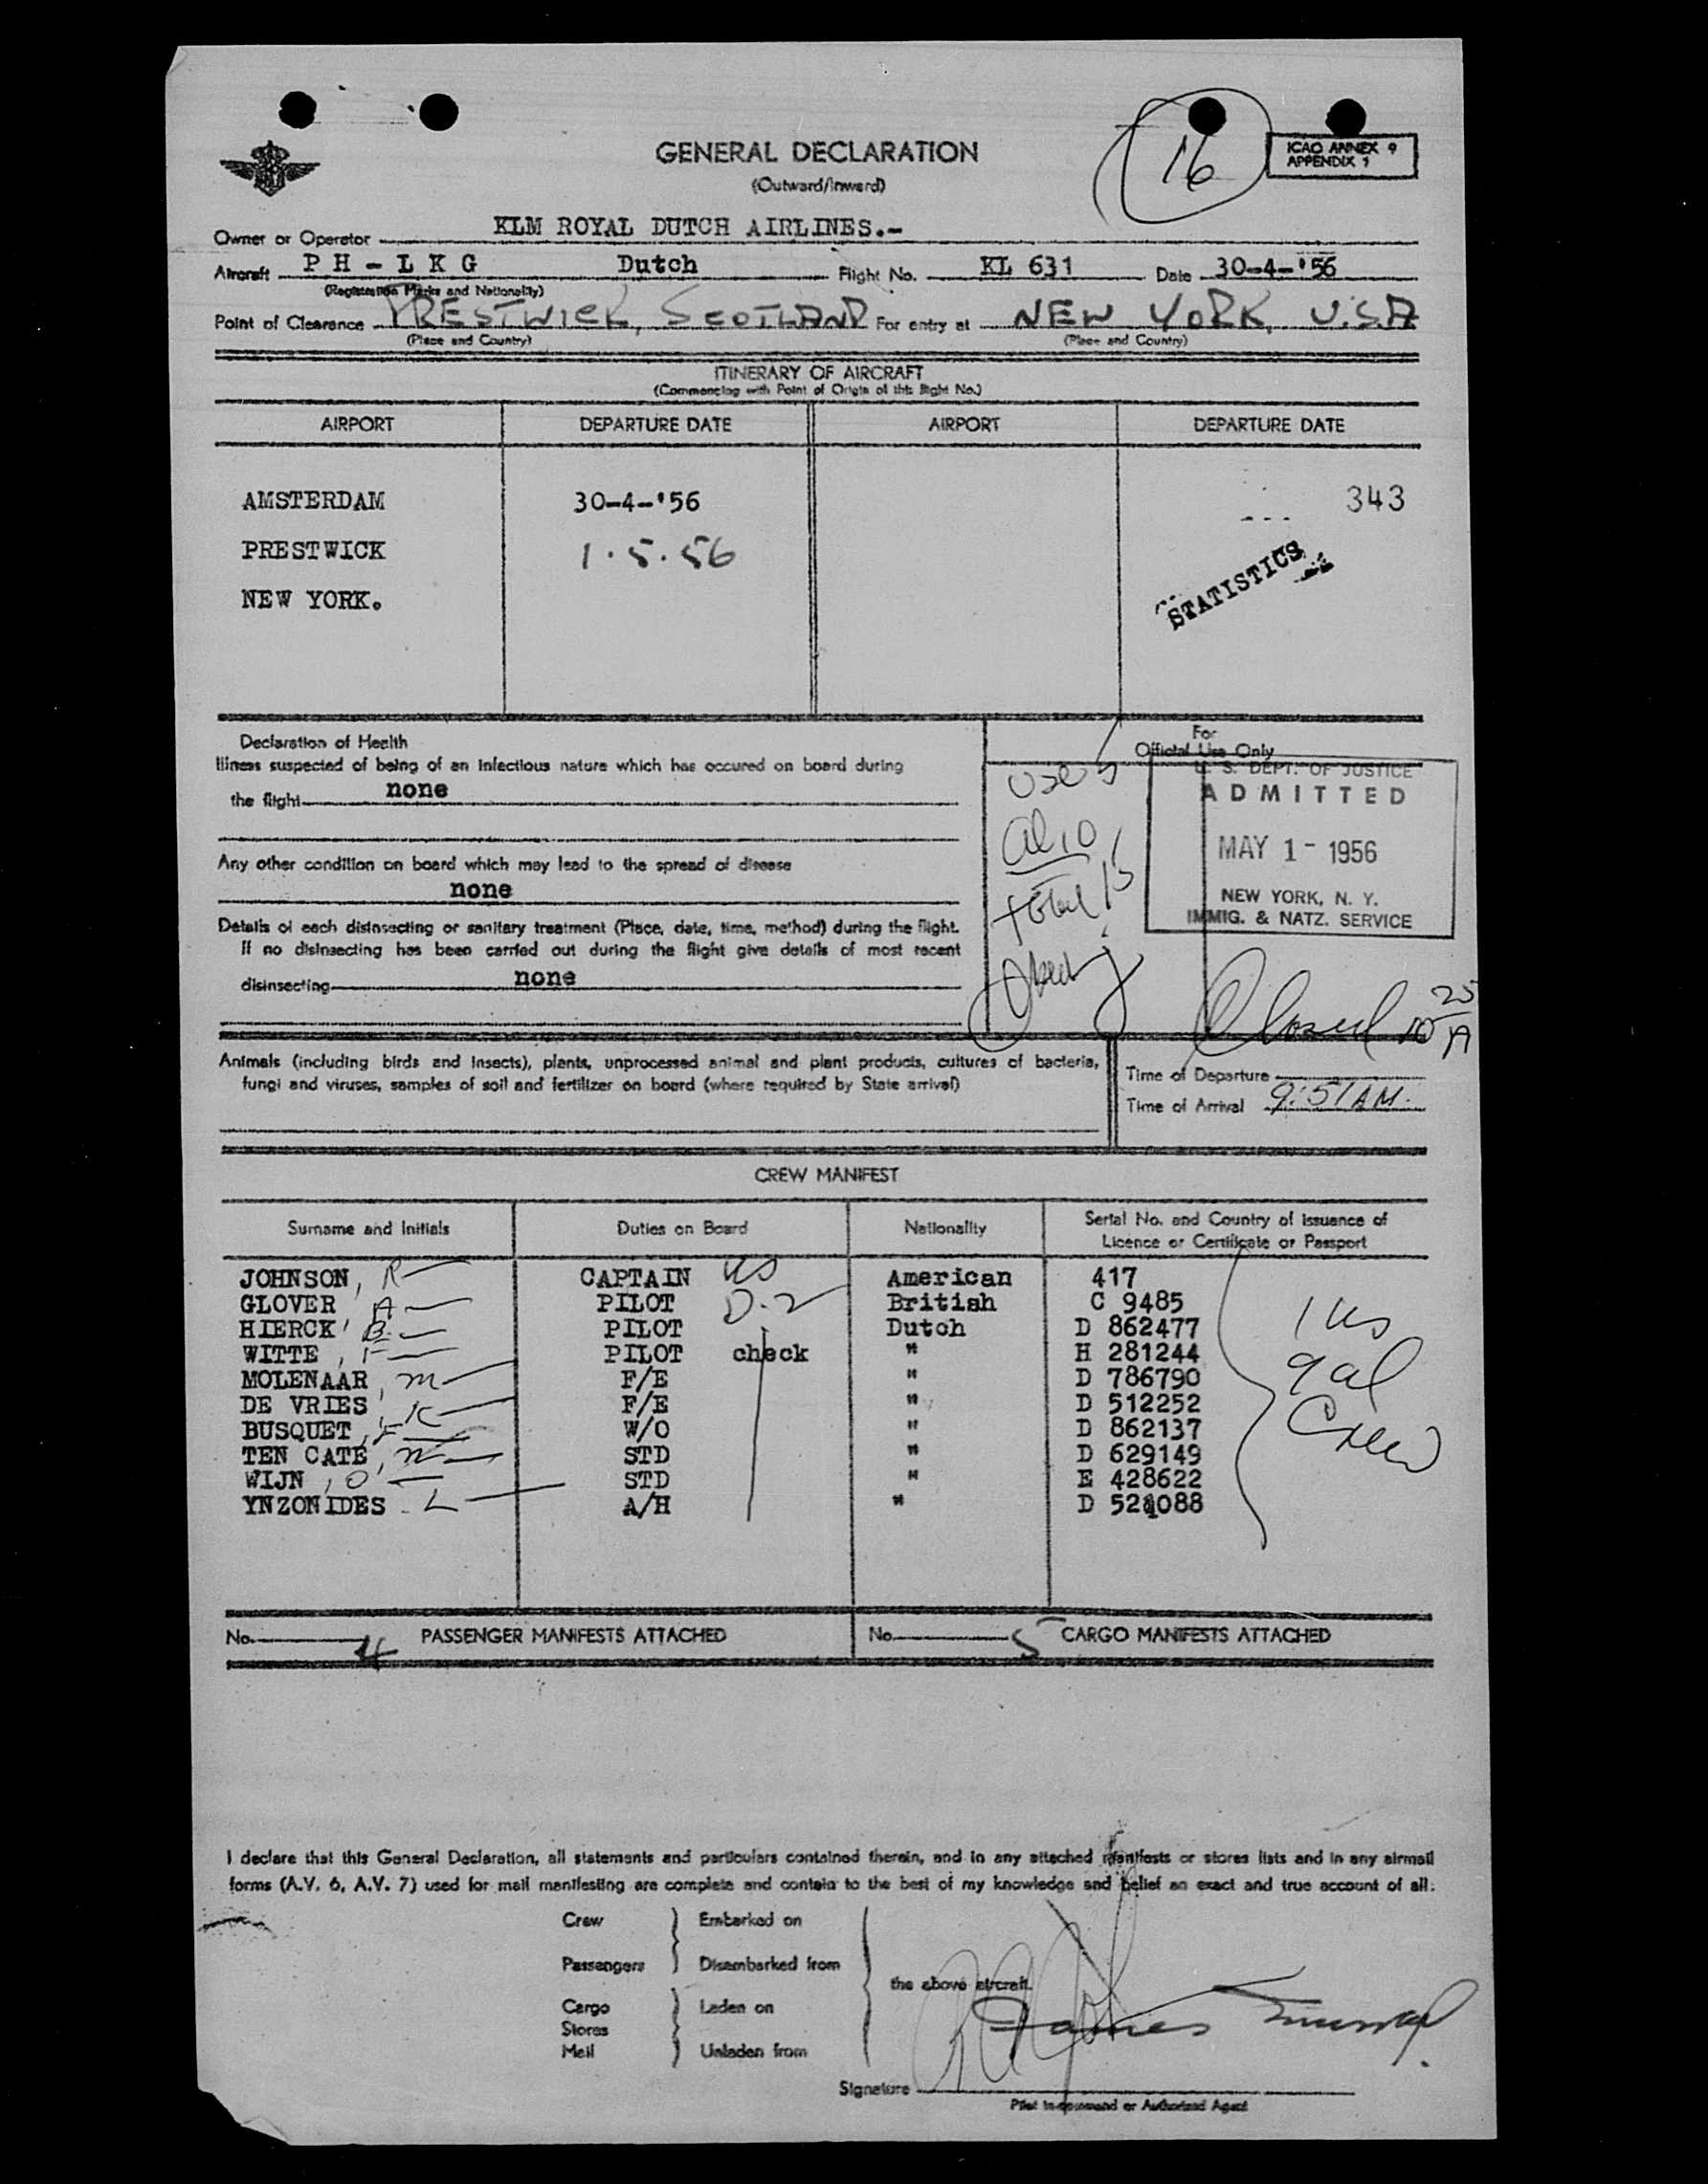 GENERAL DECLARATION
(Outward/Inward)
16
ICAO ANNEX 9
APPENDIX 1
Owner or Operator KLM ROYAL DUTCH AIRLINES.-
Aircraft PH-LKG Dutch Flight No. KL 631 Date 30-4-'56
(Registration Marks and Nationality)
Point of Clearance PRESTWICK, SCOTLAND For entry at NEW YORK, U.S.A
(Place and Country) (Place and Country)
ITINERARY OF AIRCRAFT
(Commencing with Point of Origin of this flight No.)
AIRPORT DEPARTURE DATE AIRPORT DEPARTURE DATE
AMSTERDAM 30-4-'56 343
PRESTWICK 1.5.56
STATISTICS
NEW YORK.
Declaration of Health
Illness suspected of being of an infectious nature which has occured on board during
the flight none
Any other condition on board which may lead to the spread of disease
none
Details of each disinsecting or sanitary treatment (Place, date, time, method) during the flight.
If no disinsecting has been carried out during the flight give details of most recent
disinsecting none
For
Official Use Only
U. S. DEPT. OF JUSTICE
ADMITTED
MAY 1 - 1956
NEW YORK, N. Y.
IMMIG. & NATZ. SERVICE
USC 5
al 10
total 15
Closed 10 25 A
Animals (including birds and insects), plants, unprocessed animal and plant products, cultures of bacteria,
fungi and viruses, samples of soil and fertilizer on board (where required by State arrival)
Time of Departure
Time of Arrival 9:51 AM.
CREW MANIFEST
Surname and Initials Duties on Board Nationality Serial No. and Country of issuance of
Licence or Certificate or Passport
JOHNSON, R CAPTAIN US American 417
GLOVER A PILOT D-2 British C 9485
HIERCK, B. PILOT Dutch D 862477
WITTE, F PILOT check " H 281244
MOLENAAR, M F/E " D 786790
DE VRIES, K F/E " D 512252
BUSQUET, F W/O " D 862137
TEN CATE, W STD " D 629149
WIJN, O STD " E 428622
YNZONIDES - L A/H " D 521088
1 US
9 al
Crew
No. 4 PASSENGER MANIFESTS ATTACHED No. 5 CARGO MANIFESTS ATTACHED
I declare that this General Declaration, all statements and particulars contained therein, and in any attached manifests or stores lists and in any airmail
forms (A.V. 6, A.V. 7) used for mail manifesting are complete and contain to the best of my knowledge and belief an exact and true account of all:
Crew Embarked on
Passengers Disembarked from
the above aircraft.
Cargo Laden on
Stores
Mail Unladen from
James
Signature
Pilot in-command or Authorized Agent